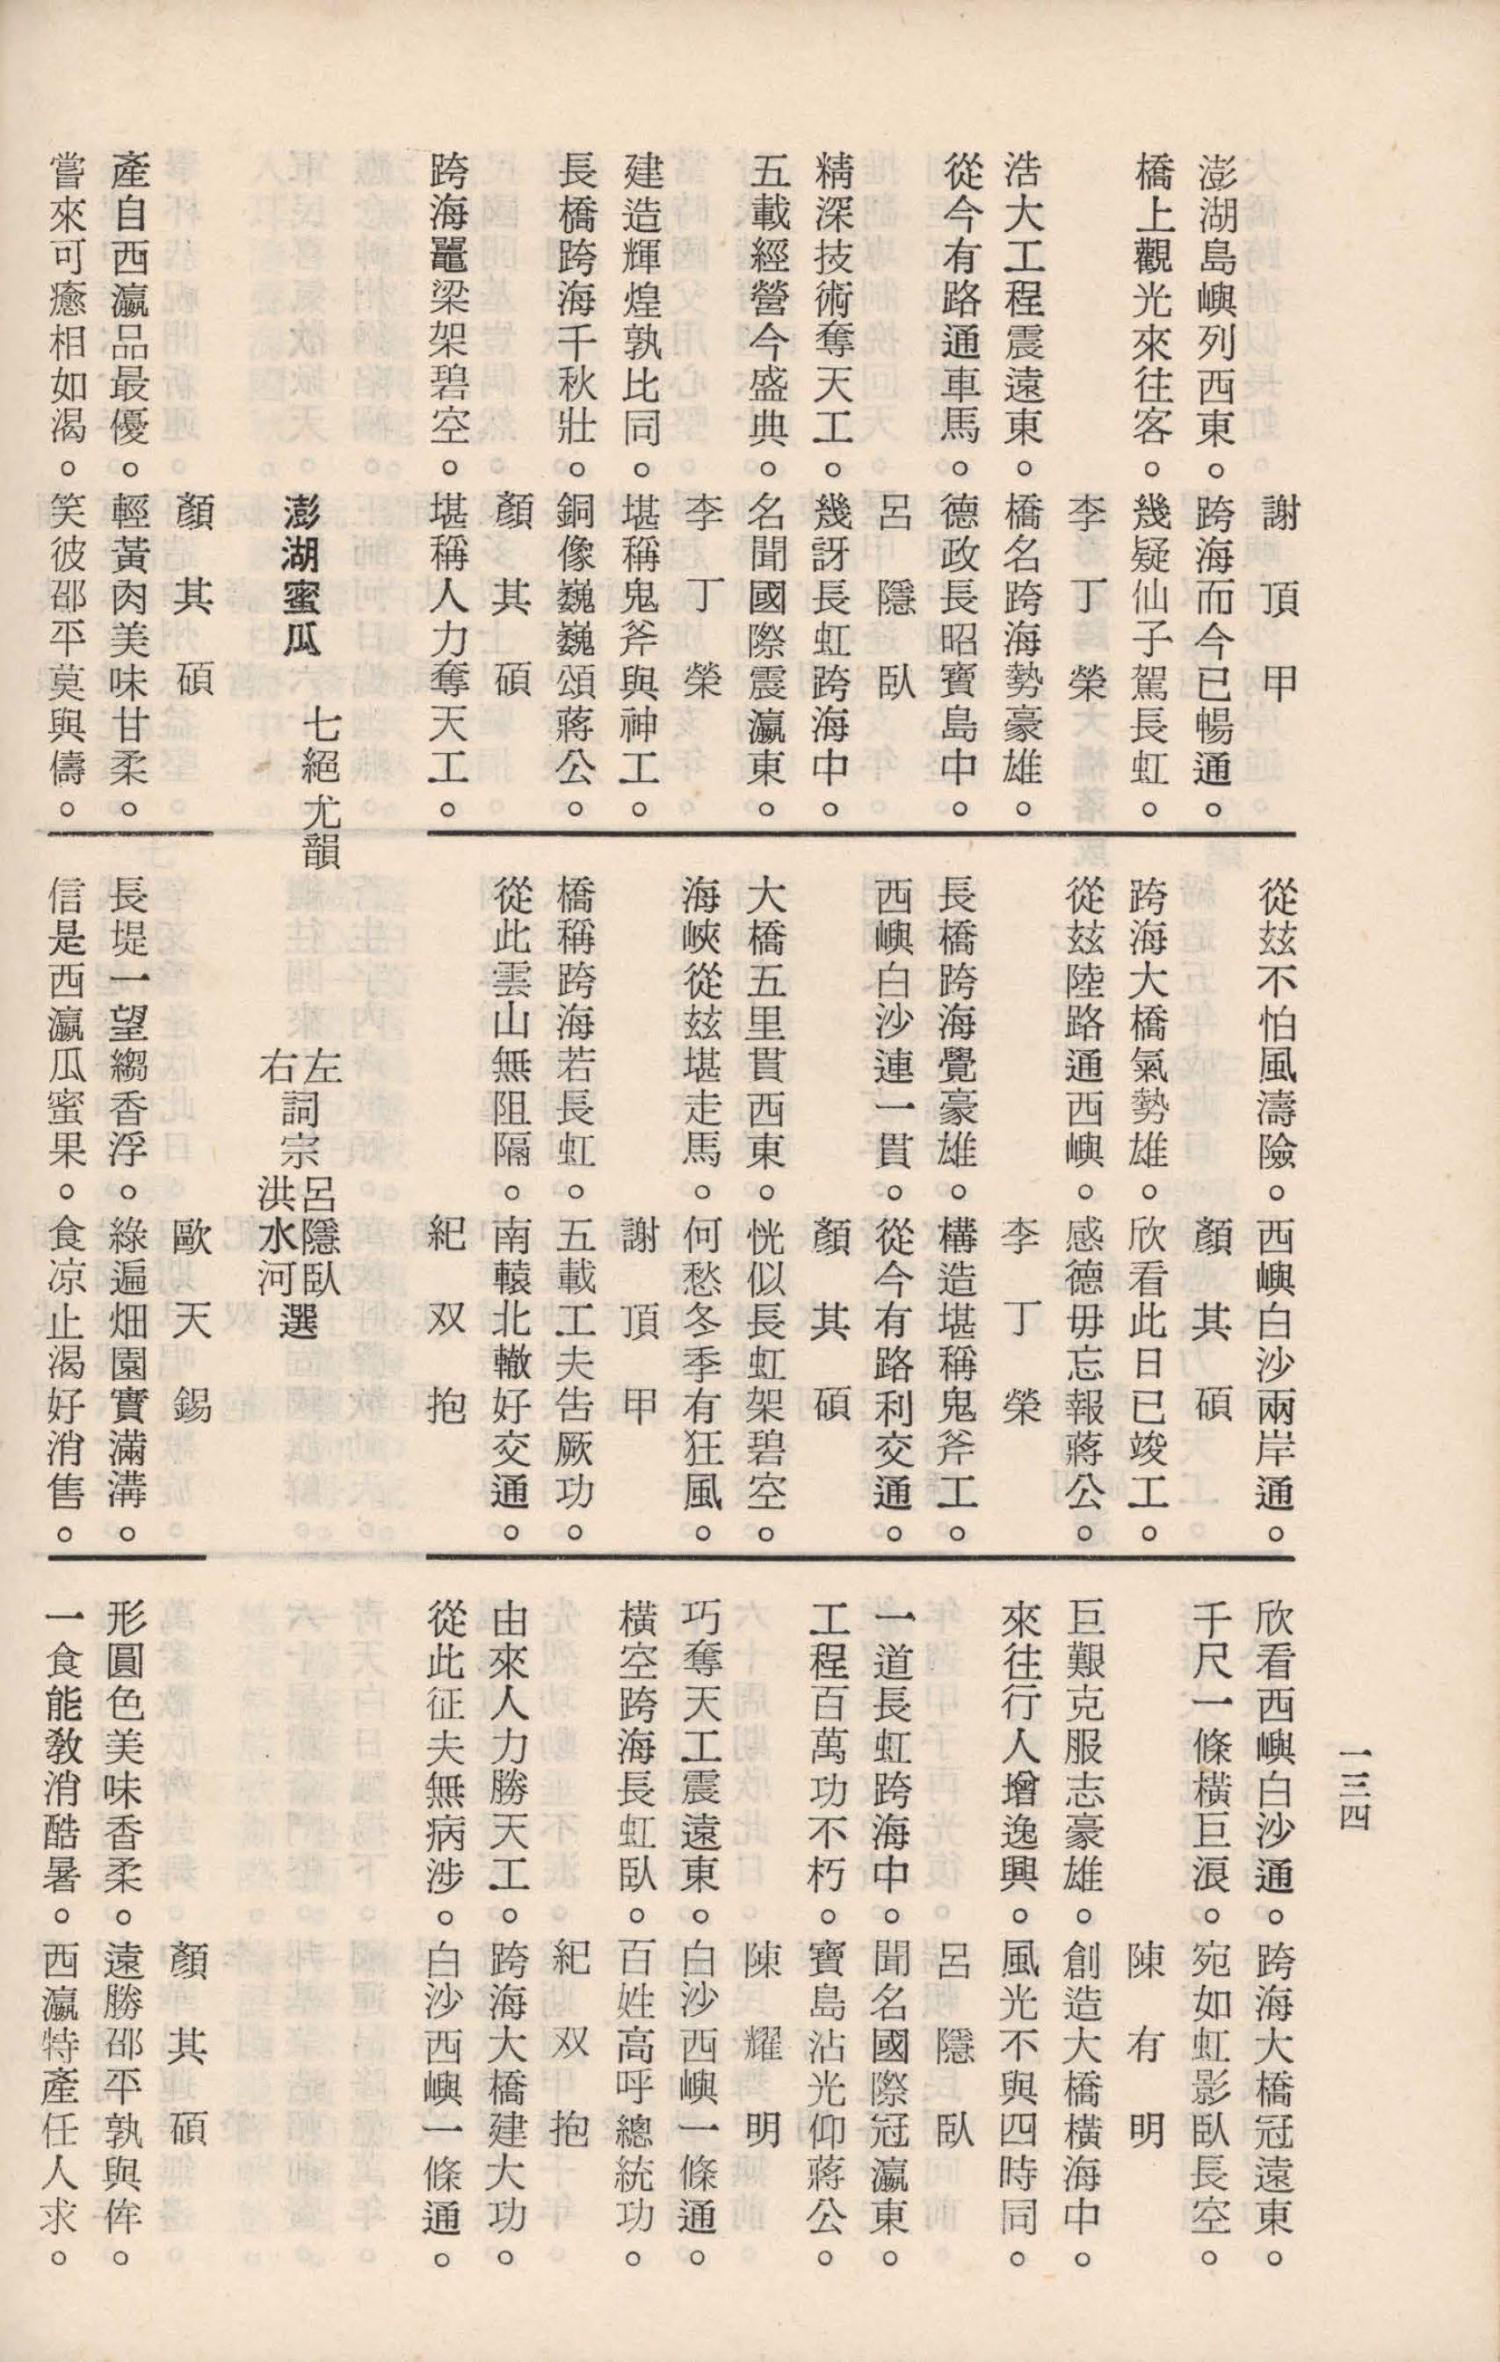 一三四
謝頂甲
澎湖島嶼列西東。跨海而今已暢通。
橋上觀光來往客。幾疑仙子駕長虹。
李丁榮
浩大工程震遠東。橋名跨海勢豪雄。
從今有路通車馬。德政長昭寶島中。
呂隱臥
精深技術奪天工。幾訝長虹跨海中。
五載經營今盛典。名聞國際震瀛東。
李丁榮
建造輝煌孰比同。堪稱鬼斧與神工。
長橋跨海千秋壯。銅像巍巍頌蔣公。
顏其碩
跨海鼉梁架碧空。堪稱人力奪天工。
從玆不怕風濤險。西嶼白沙兩岸通。
顏其碩
跨海大橋氣勢雄。欣看此日已竣工。
從玆陸路通西嶼。感德毋忘報蔣公。
李丁榮
長橋跨海覺豪雄。構造堪稱鬼斧工。
西嶼白沙連一貫。從今有路利交通。
顏其碩
大橋五里貫西東。恍似長虹架碧空。
海峽從玆堪走馬。何愁冬季有狂風。
謝頂甲
橋稱跨海若長虹。五載工夫告厥功。
從此雲山無阻隔。南轅北轍好交通。
紀双抱
欣看西嶼白沙通。跨海大橋冠遠東。
千尺一條橫巨浪。宛如虹影臥長空。
陳有明
巨艱克服志豪雄。創造大橋橫海中。
來往行人增逸興。風光不與四時同。
呂隱臥
一道長虹跨海中。聞名國際冠瀛東。
工程百萬功不朽。寶島沾光仰蔣公。
陳耀明
巧奪天工震遠東。白沙西嶼一條通。
橫空跨海長虹臥。百姓高呼總統功。
紀双抱
由來人力勝天工。跨海大橋建大功。
從此征夫無病涉。白沙西嶼一條通。
澎湖蜜瓜 七絕尤韻
左詞宗呂隱臥選
右詞宗洪水河選
顏其碩
產自西瀛品最優。輕黃肉美味甘柔。
嘗來可癒相如渴。笑彼邵平莫與儔。
歐天錫
長堤一望縐香浮。綠遍畑園實滿溝。
信是西瀛瓜蜜果。食凉止渴好消售。
顏其碩
形圓色美味香柔。遠勝邵平孰與侔。
一食能敎消酷暑。西瀛特產任人求。